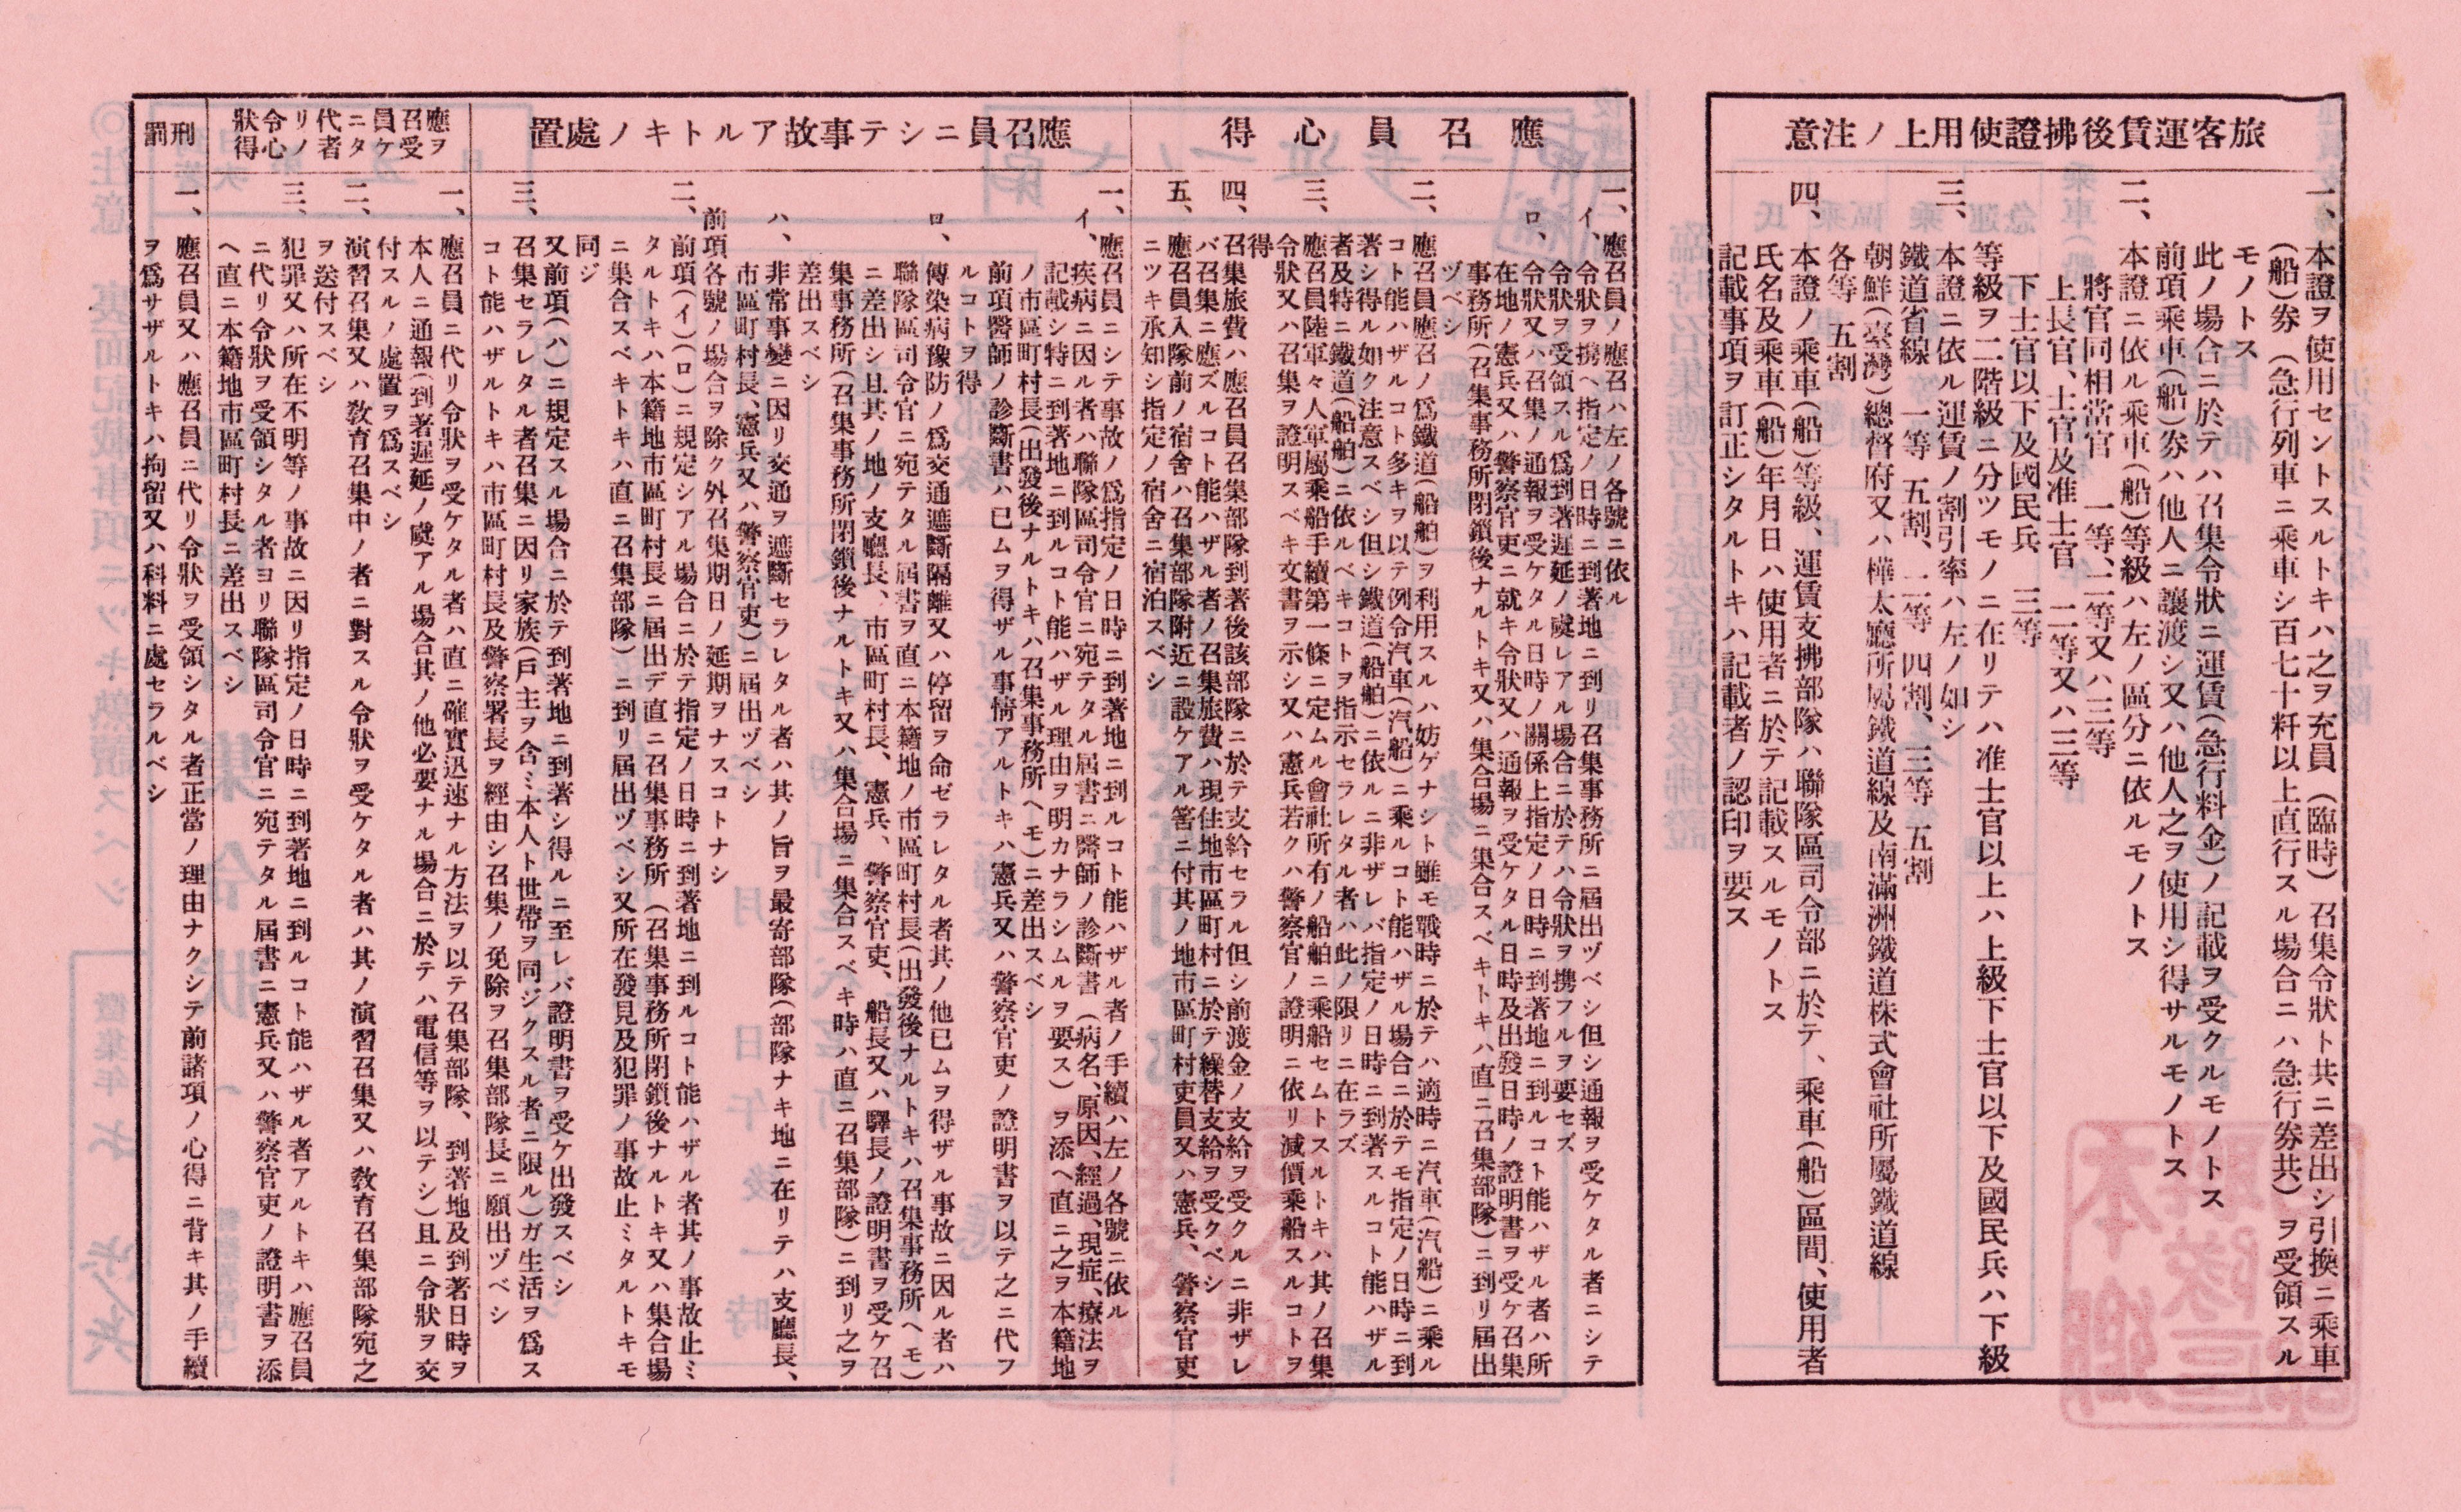 旅客運賃後拂證使用上ノ注意
一、本證ヲ使用セントスルトキハ之ヲ充員（臨時）召集令狀ト共ニ差出シ引換ニ乘車
（船）券（急行列車ニ乘車シ百七十粁以上直行スル場合ニハ急行券共）ヲ受領スル
モノトス
此ノ場合ニ於テハ召集令狀ニ運賃（急行料金）ノ記載ヲ受クルモノトス
前項乘車（船）券ハ他人ニ讓渡シ又ハ他人之ヲ使用シ得サルモノトス
二、本證ニ依ル乘車（船）等級ハ左ノ區分ニ依ルモノトス
將官同相當官　一等、二等又ハ三等
上長官、士官及准士官　二等又ハ三等
下士官以下及國民兵　三等
等級ヲ二階級ニ分ツモノニ在リテハ准士官以上ハ上級下士官以下及國民兵ハ下級
三、本證ニ依ル運賃ノ割引率ハ左ノ如シ
鐵道省線　一等　五割、二等　四割、三等　五割
朝鮮（臺灣）總督府又ハ樺太廳所屬鐵道線及南滿洲鐵道株式會社所屬鐵道線
各等　五割
四、本證ノ乘車（船）等級、運賃支拂部隊ハ聯隊區司令部ニ於テ、乘車（船）區間、使用者
氏名及乘車（船）年月日ハ使用者ニ於テ記載スルモノトス
記載事項ヲ訂正シタルトキハ記載者ノ認印ヲ要ス
應召員心得
一、應召員ノ應召ハ左ノ各號ニ依ル
イ、令狀ヲ携ヘ指定ノ日時ニ到著地ニ到リ召集事務所ニ屆出ヅベシ但シ通報ヲ受ケタル者ニシテ
令狀ヲ受領スル爲到著遲延ノ虞レアル場合ニ於テハ令狀ヲ携フルヲ要セズ
ロ、令狀又ハ召集ノ通報ヲ受ケタル日時ノ關係上指定ノ日時ニ到著地ニ到ルコト能ハザル者ハ所
在地ノ憲兵又ハ警察官吏ニ就キ令狀又ハ通報ヲ受ケタル日時及出發日時ノ證明書ヲ受ケ召集
事務所（召集事務所閉鎖後ナルトキ又ハ集合場ニ集合スベキトキハ直ニ召集部隊）ニ到リ屆出
ヅベシ
二、應召員應召ノ爲鐵道（船舶）ヲ利用スルハ妨ゲナシト雖モ戰時ニ於テハ適時ニ汽車（汽船）ニ乘ル
コト能ハザルコト多キヲ以テ例令汽車（汽船）ニ乘ルコト能ハザル場合ニ於テモ指定ノ日時ニ到
著シ得ル如ク注意スベシ但シ鐵道（船舶）ニ依ルニ非ザレバ指定ノ日時ニ到著スルコト能ハザル
者及特ニ鐵道（船舶）ニ依ルベキコトヲ指示セラレタル者ハ此ノ限リニ在ラズ
三、應召員陸軍々人軍屬乘船手續第一條ニ定ムル會社所有ノ船舶ニ乘船セムトスルトキハ其ノ召集
令狀又ハ召集ヲ證明スベキ文書ヲ示シ又ハ憲兵若クハ警察官ノ證明ニ依リ減價乘船スルコトヲ
得
四、召集旅費ハ應召員召集部隊到著後該部隊ニ於テ支給セラル但シ前渡金ノ支給ヲ受クルニ非ザレ
バ召集ニ應ズルコト能ハザル者ノ召集旅費ハ現住地市區町村ニ於テ繰替支給ヲ受クベシ
五、應召員入隊前ノ宿舍ハ召集部隊附近ニ設ケアル筈ニ付其ノ地市區町村吏員又ハ憲兵、警察官吏
ニツキ承知シ指定ノ宿舍ニ宿泊スベシ
應召員ニシテ事故アルトキノ處置
一、應召員ニシテ事故ノ爲指定ノ日時ニ到著地ニ到ルコト能ハザル者ノ手續ハ左ノ各號ニ依ル
イ、疾病ニ因ル者ハ聯隊區司令官ニ宛テタル屆書ニ醫師ノ診斷書（病名、原因、經過、現症、療法ヲ
記載シ特ニ到著地ニ到ルコト能ハザル理由ヲ明カナラシムルヲ要ス）ヲ添ヘ直ニ之ヲ本籍地
ノ市區町村長（出發後ナルトキハ召集事務所ヘモ）ニ差出スベシ
前項醫師ノ診斷書ハ已ムヲ得ザル事情アルトキハ憲兵又ハ警察官吏ノ證明書ヲ以テ之ニ代フ
ルコトヲ得
ロ、傳染病豫防ノ爲交通遮斷隔離又ハ停留ヲ命ゼラレタル者其ノ他已ムヲ得ザル事故ニ因ル者ハ
聯隊區司令官ニ宛テタル屆書ヲ直ニ本籍地ノ市區町村長（出發後ナルトキハ召集事務所ヘモ）
ニ差出シ且其ノ地ノ支廳長、市區町村長、憲兵、警察官吏、船長又ハ驛長ノ證明書ヲ受ケ召
集事務所（召集事務所閉鎖後ナルトキ又ハ集合場ニ集合スベキ時ハ直ニ召集部隊）ニ到リ之ヲ
差出スベシ
ハ、非常事變ニ因リ交通ヲ遮斷セラレタル者ハ其ノ旨ヲ最寄部隊（部隊ナキ地ニ在リテハ支廳長、
市區町村長、憲兵又ハ警察官吏）ニ屆出ヅベシ
前項各號ノ場合ヲ除ク外召集期日ノ延期ヲナスコトナシ
二、前項（イ）（ロ）ニ規定シアル場合ニ於テ指定ノ日時ニ到著地ニ到ルコト能ハザル者其ノ事故止ミ
タルトキハ本籍地市區町村長ニ屆出デ直ニ召集事務所（召集事務所閉鎖後ナルトキ又ハ集合場
ニ集合スベキトキハ直ニ召集部隊）ニ到リ屆出ヅベシ又所在發見及犯罪ノ事故止ミタルトキモ
同ジ
又前項（ハ）ニ規定スル場合ニ於テ到著地ニ到著シ得ルニ至レバ證明書ヲ受ケ出發スベシ
三、召集セラレタル者召集ニ因リ家族（戶主ヲ含ミ本人ト世帶ヲ同ジクスル者ニ限ル）ガ生活ヲ爲ス
コト能ハザルトキハ市區町村長及警察署長ヲ經由シ召集ノ免除ヲ召集部隊長ニ願出ヅベシ
應召員ニ代リ令狀ヲ受ケタル者ノ心得
一、應召員ニ代リ令狀ヲ受ケタル者ハ直ニ確實迅速ナル方法ヲ以テ召集部隊、到著地及到著日時ヲ
本人ニ通報（到著遲延ノ虞アル場合其ノ他必要ナル場合ニ於テハ電信等ヲ以テシ）且ニ令狀ヲ交
付スルノ處置ヲ爲スベシ
二、演習召集又ハ敎育召集中ノ者ニ對スル令狀ヲ受ケタル者ハ其ノ演習召集又ハ敎育召集部隊宛之
ヲ送付スベシ
三、犯罪又ハ所在不明等ノ事故ニ因リ指定ノ日時ニ到著地ニ到ルコト能ハザル者アルトキハ應召員
ニ代リ令狀ヲ受領シタル者ヨリ聯隊區司令官ニ宛テタル屆書ニ憲兵又ハ警察官吏ノ證明書ヲ添
ヘ直ニ本籍地市區町村長ニ差出スベシ
刑罰
一、應召員又ハ應召員ニ代リ令狀ヲ受領シタル者正當ノ理由ナクシテ前諸項ノ心得ニ背キ其ノ手續
ヲ爲サザルトキハ拘留又ハ科料ニ處セラルベシ